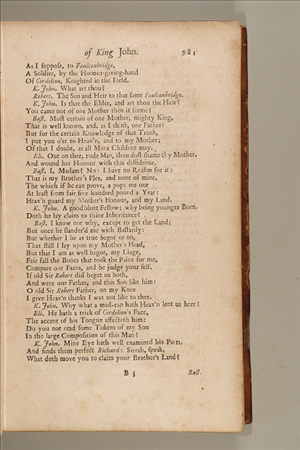 of King John. 981
As I suppose, to Faulconbridge,
A Soldier, by the Honour-giving-hand
Of Cordelion, Knighted in the Field.
K. John. What art thou?
Robert. The Son and Heir to that same Faulconbridge.
K. John. Is that the Elder, and art thou the Heir?
You came not of one Mother then it seems?
Bast. Most certain of one Mother, mighty King,
That is well known, and, as I think, one Father:
But for the certain Knowledge of that Truth,
I put you o'er to Heav'n, and to my Mother;
Of that I doubt, as all Mens Children may.
Eli. Out on thee, rude Man, thou dost shame thy Mother,
And wound her Honour with this diffidence.
Bast. I, Madam? No: I have no Reason for it;
That is my Brother's Plea, and none of mine,
The which if he can prove, a pops me out
At least from fair five hundred pound a Year:
Heav'n guard my Mother's Honour, and my Land.
K. John. A good blunt Fellow; why being younger Born,
Doth he lay claim to thine Inheritance?
Bast. I know not why, except to get the Land;
But once he slander'd me with Bastardy:
But whether I be as true begot or no,
That still I lay upon my Mother's Head,
But that I am as well begot, my Liege,
Fair fall the Bones that took the Pains for me,
Compare our Faces, and be Judge your self,
If old Sir Robert did beget us both,
And were our Father, and this Son like him:
O old Sir Robert Father, on my Knee
I give Heav'n thanks I was not like to thee.
K. John. Why what a mad-cap hath Heav'n lent us here?
Eli. He hath a trick of Cordelion's Face,
The accent of his Tongue affecteth him:
Do you not read some Tokens of my Son
In the large Composition of this Man?
K. John. Mine Eye hath well examined his Parts,
And finds them perfect Richard: Sirrah, speak,
What doth move you to claim your Brother's Land?
B 3 Bast.